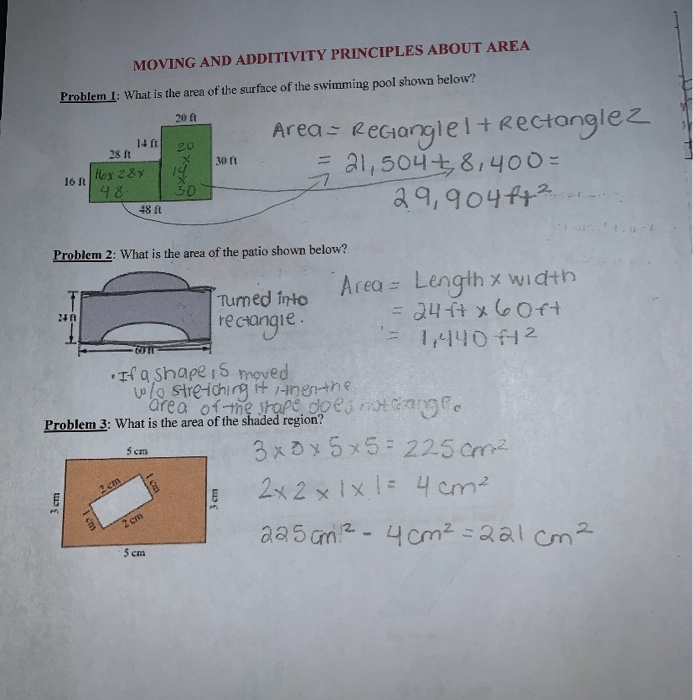 MOVING AND ADDITIVITY PRINCIPLES ABOUT AREA
Problem 1: What is the area of the surface of the swimming pool shown below?
20 ft
14 ft
28 ft
30 ft
16 ft
48 ft
20
x
14
x
30
16 x 28 x
48
Area = Rectangle 1 + Rectangle 2
= 21,504 + 8,400 =
29,904 ft²
Problem 2: What is the area of the patio shown below?
24 ft
60 ft
Turned into
rectangle.
Area = Length x width
= 24 ft x 60 ft
= 1,440 ft²
• If a shape is moved
w/o stretching it, then the
area of the shape does not change.
Problem 3: What is the area of the shaded region?
5 cm
3 cm
2 cm
1 cm
1 cm
2 cm
3 cm
5 cm
3 x 3 x 5 x 5 = 225 cm²
2 x 2 x 1 x 1 = 4 cm²
225 cm² - 4 cm² = 221 cm²